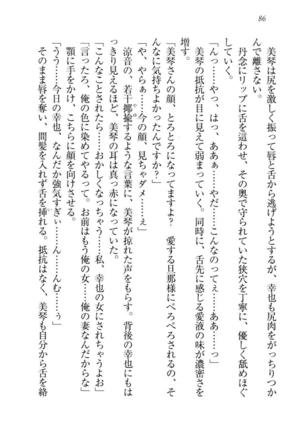 86
美琴は尻を激しく振って唇と舌から逃げようとするが、幸也も尻肉をがっちりつか
んで離さない。
丹念にリップに舌を這わせ、その奥で守られていた狭穴を丁寧に、優しく舐めほぐ
していく。
「んっ……やっ、はっ、ああぁ……やだ……こんなのってぇ……ああっ」
美琴の抵抗が目に見えて弱まっていく。同時に、舌先に感じる愛液の味が濃密さを
増す。
「美琴さんの顔、とろとろになってますよ？　愛する旦那様にべろべろされるの、そ
んなに気持ちよかったんですか？」
「や、やらぁ……今の顔、見ちゃダメ……ぇ」
涼音の、若干揶揄するような言葉に、美琴が掠れた声をもらす。背後の幸也にもは
っきり見えるほど、美琴の耳は真っ赤になっていた。
「こんなことされたら……おかしくなっちゃう……私、幸也の女にされちゃうよお」
「言ったろ、俺の色に染めてやるって。お前はもう俺の女……俺の妻なんだからな」
顎に手をかけ、こちらに顔を向けさせる。
「うう……今日の幸也、なんだか強気すぎぃ……んっ……んむ……ぅ」
そのまま唇を奪い、間髪を入れず舌を挿れる。抵抗はなく、美琴も自分から舌を絡